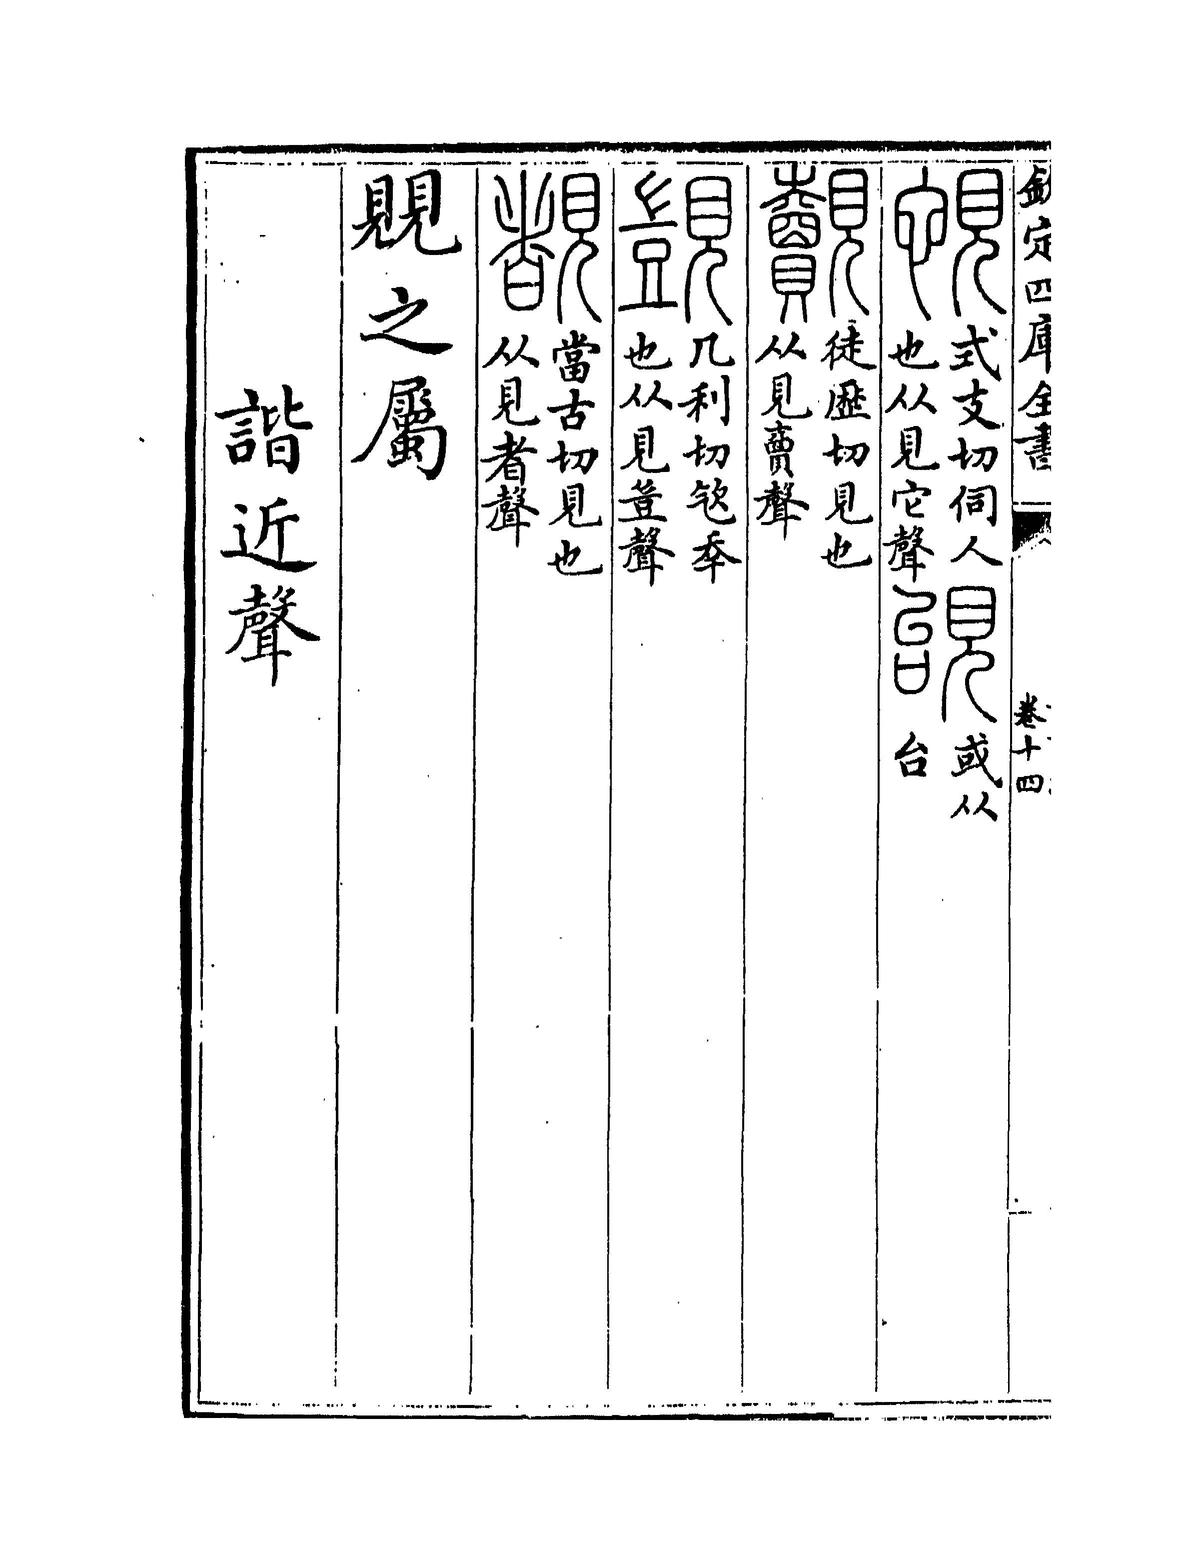 欽定四庫全書 卷十四
式支切伺人
也从見它聲
或从
台
覿 徒歷切見也
从見賣聲
覬 几利切
也从見豈聲
覩 當古切見也
从見者聲
覞之屬
諧近聲